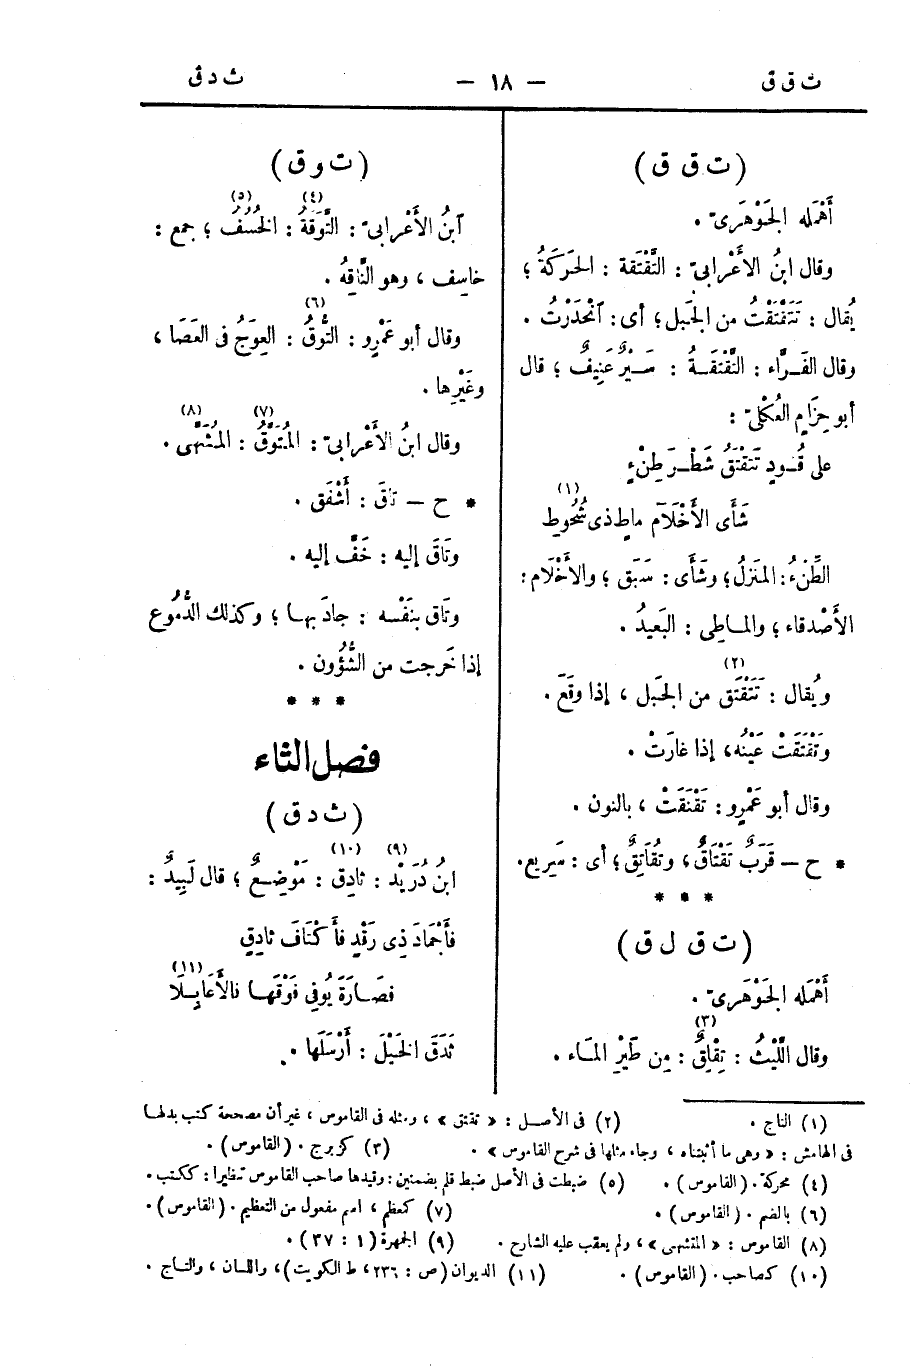 ت ق ق
— ١٨ —
ث د ق
( ت ق ق )
أَهْمَله الجَوْهَرىّ .
وقال ابنُ الأَعْرابىّ : التَّقْتَقة : الحَرَكَةُ ؛
يُقال : تَتَقْتَقْتُ من الجَبل ؛ أى : ٱنْحَدَرْتُ .
وقال الفَرَّاء : التَّقْتَقَةُ : سَيْرٌ عَنِيفٌ ؛ قال
أبو حِزَام العُكْلىّ :
على قُودٍ تَتَقْتَقُ شَطْرَ طِنْءٍ
شَأَى الأَخْلَامَ ماطٍ ذى شُحُوطِ (١)
الطِّنْءُ : المَنزلُ ؛ وشَأَى : سَبَق ؛ والأَخْلام :
الأَصْدقاء ؛ والمـاطِى : البَعيدُ .
ويُقال : تَتَقْتَق (٢) من الجَبل ، إذا وقَعَ .
وتَقْتَقَتْ عَيْنُه ، إذا غارَتْ .
وقال أبو عَمْرٍو : تَقْنَقَتْ ، بالنون .
* ح — قَرَبٌ تَقْتَاقٌ ، وتُقَاتِقٌ ؛ أى : سَرِيع .
* * *
( ت ق ل ق )
أَهْمَله الجَوْهَرىّ .
وقال اللَّيْثُ : تِقْلِقٌ (٣) : مِن طَيْرِ المـاء .
( ت و ق )
ٱبنُ الأَعْرابىّ : التَّوَقَةُ (٤) : الخُسُفُ (٥) ؛ جمع :
خاسِف ، وهو النَّاقِهُ .
وقال أبو عَمْرٍو : التُّوقُ (٦) : العِوَجُ فى العَصَا ،
وغَيْرِها .
وقال ابنُ الأَعْرابىّ : المُتَوَّقُ (٧) : المُشَهَّى (٨) .
* ح — تاقَ : أَشْفَق .
وتَاقَ إليه : خَفَّ إليه .
وتَاق بنَفْسه : جادَ بهـا ؛ وكذلك الدُّمُوع
إذا خَرجت من الشُّؤُون .
* * *
فصل الثاء
( ث د ق )
ابنُ دُرَيْد (٩) : ثادِق (١٠) : مَوْضِعٌ ؛ قال لَبِيدٌ :
فأَجْمَادَ ذِى رَقْدٍ فأَكْنَافَ ثادِقٍ
فصَـارَةَ يُوفِى فَوْقَهـا فالأَعَابِلَا (١١)
ثَدَقَ الخَيْلَ : أَرْسَلَها .
(١) التاج . (٢) فى الأصل : « تقتق » ، ومثله فى القاموس ، غير أن مصححه كتب بدلها
فى الهامش : « وهى ما أثبتناه ، وجاء مثلها فى شرح القاموس » . (٣) كزبرج . ( القاموس ) .
(٤) محركة . ( القاموس ) . (٥) ضبطت فى الأصل ضبط قلم بضمتين : وقيدها صاحب القاموس تنظيرا : ككتب .
(٦) بالضم . ( القاموس ) . (٧) كمعظم ، اسم مفعول من التعظيم . ( القاموس ) .
(٨) القاموس : « المتشهى » ، ولم يعقب عليه الشارح . (٩) الجمهرة ( ١ : ٣٧ ) .
(١٠) كصاحب . ( القاموس ) . (١١) الديوان ( ص : ٢٣٦ ، ط الكويت ) ، واللسان ، والتاج .